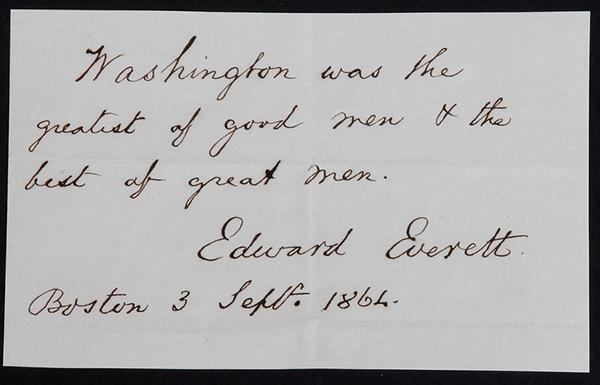 Washington was the
greatest of good men & the
best of great men.
Edward Everett.
Boston 3 Sept. 1864.